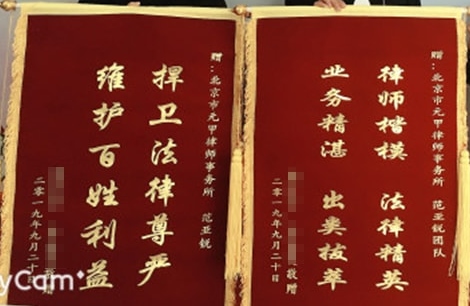 赠：北京市元甲律师事务所 范亚锐
捍卫法律尊严
维护百姓利益
二零一九年九月二十日
敬赠
赠：北京市元甲律师事务所 范亚锐团队
律师楷模 法律精英
业务精湛 出类拔萃
二零一九年九月二十日
敬赠
yCam